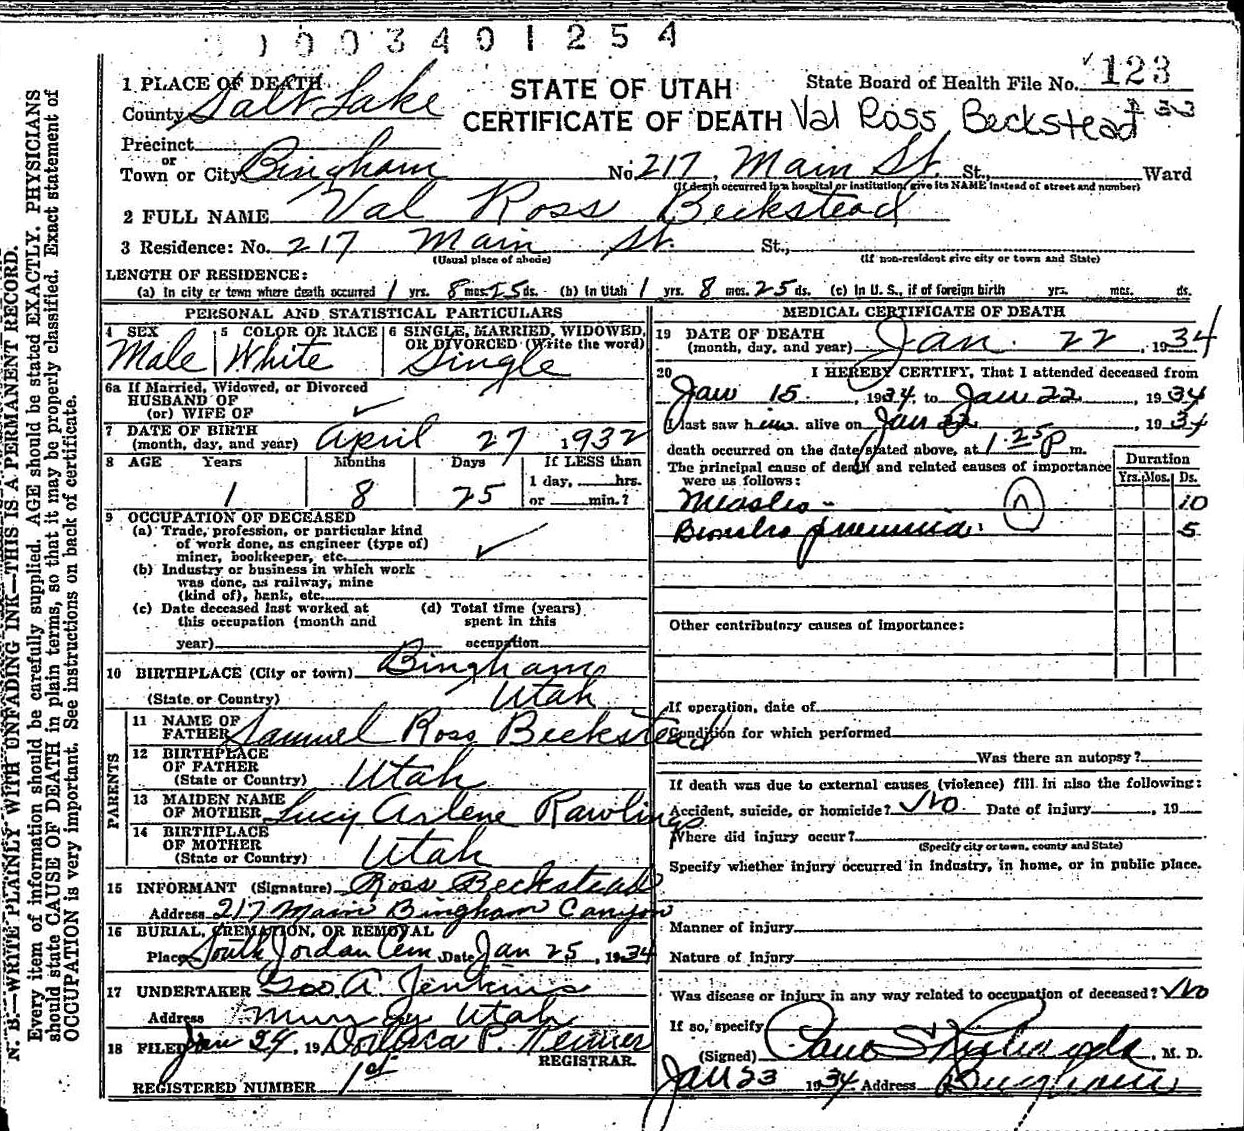 0003401254
1 PLACE OF DEATH
County Salt Lake
STATE OF UTAH
CERTIFICATE OF DEATH
State Board of Health File No. 123
Val Ross Beckstead
Precinct
or
Town or City Bingham No. 217 Main St. St., Ward
(If death occurred in a hospital or institution, give its NAME instead of street and number)
2 FULL NAME Val Ross Beckstead
3 Residence: No. 217 Main St. St.,
(Usual place of abode) (If non-resident give city or town and State)
LENGTH OF RESIDENCE:
(a) In city or town where death occurred 1 yrs. 8 mos. 25 ds. (b) In Utah 1 yrs. 8 mos. 25 ds. (c) In U. S., if of foreign birth yrs. mos. ds.
PERSONAL AND STATISTICAL PARTICULARS
4 SEX Male
5 COLOR OR RACE White
6 SINGLE, MARRIED, WIDOWED, OR DIVORCED (Write the word) Single
6a If Married, Widowed, or Divorced
HUSBAND OF
(or) WIFE OF
7 DATE OF BIRTH
(month, day, and year) April 27 1932
8 AGE Years Months Days If LESS than
1 day, hrs.
1 8 25 or min.?
9 OCCUPATION OF DECEASED
(a) Trade, profession, or particular kind
of work done, as engineer (type of)
miner, bookkeeper, etc.
(b) Industry or business in which work
was done, as railway, mine
(kind of), bank, etc.
(c) Date deceased last worked at
this occupation (month and
year)
(d) Total time (years)
spent in this
occupation
10 BIRTHPLACE (City or town) Bingham
(State or Country) Utah
PARENTS
11 NAME OF
FATHER Samuel Ross Beckstead
12 BIRTHPLACE
OF FATHER
(State or Country) Utah
13 MAIDEN NAME
OF MOTHER Lucy Arlene Rawlings
14 BIRTHPLACE
OF MOTHER
(State or Country) Utah
15 INFORMANT (Signature) Ross Beckstead
Address 217 Main Bingham Canyon
16 BURIAL, CREMATION, OR REMOVAL
Place South Jordan Cem Date Jan 25, 1934
17 UNDERTAKER Geo A. Jenkins
Address Murray Utah
18 FILED Jan 24, 19
REGISTRAR.
REGISTERED NUMBER 1st
MEDICAL CERTIFICATE OF DEATH
19 DATE OF DEATH
(month, day, and year) Jan. 22, 1934
20 I HEREBY CERTIFY, That I attended deceased from
Jan 15, 1934, to Jan 22, 1934
I last saw him alive on Jan 22, 1934
death occurred on the date stated above, at 1.25 P m.
The principal cause of death and related causes of importance
were as follows:
Duration
Yrs. Mos. Ds.
Measles 10
Broncho pneumonia 5
Other contributory causes of importance:
If operation, date of
Condition for which performed
Was there an autopsy?
If death was due to external causes (violence) fill in also the following:
Accident, suicide, or homicide? No Date of injury, 19
Where did injury occur?
(Specify city or town, county and State)
Specify whether injury occurred in industry, in home, or in public place.
Manner of injury
Nature of injury
Was disease or injury in any way related to occupation of deceased? No
If so, specify
(Signed) Paul S Richards, M. D.
Jan 23 1934 Address Bingham
N. B.—WRITE PLAINLY WITH UNFADING INK—THIS IS A PERMANENT RECORD.
Every item of information should be carefully supplied. AGE should be stated EXACTLY. PHYSICIANS
should state CAUSE OF DEATH in plain terms, so that it may be properly classified. Exact statement of
OCCUPATION is very important. See instructions on back of certificate.